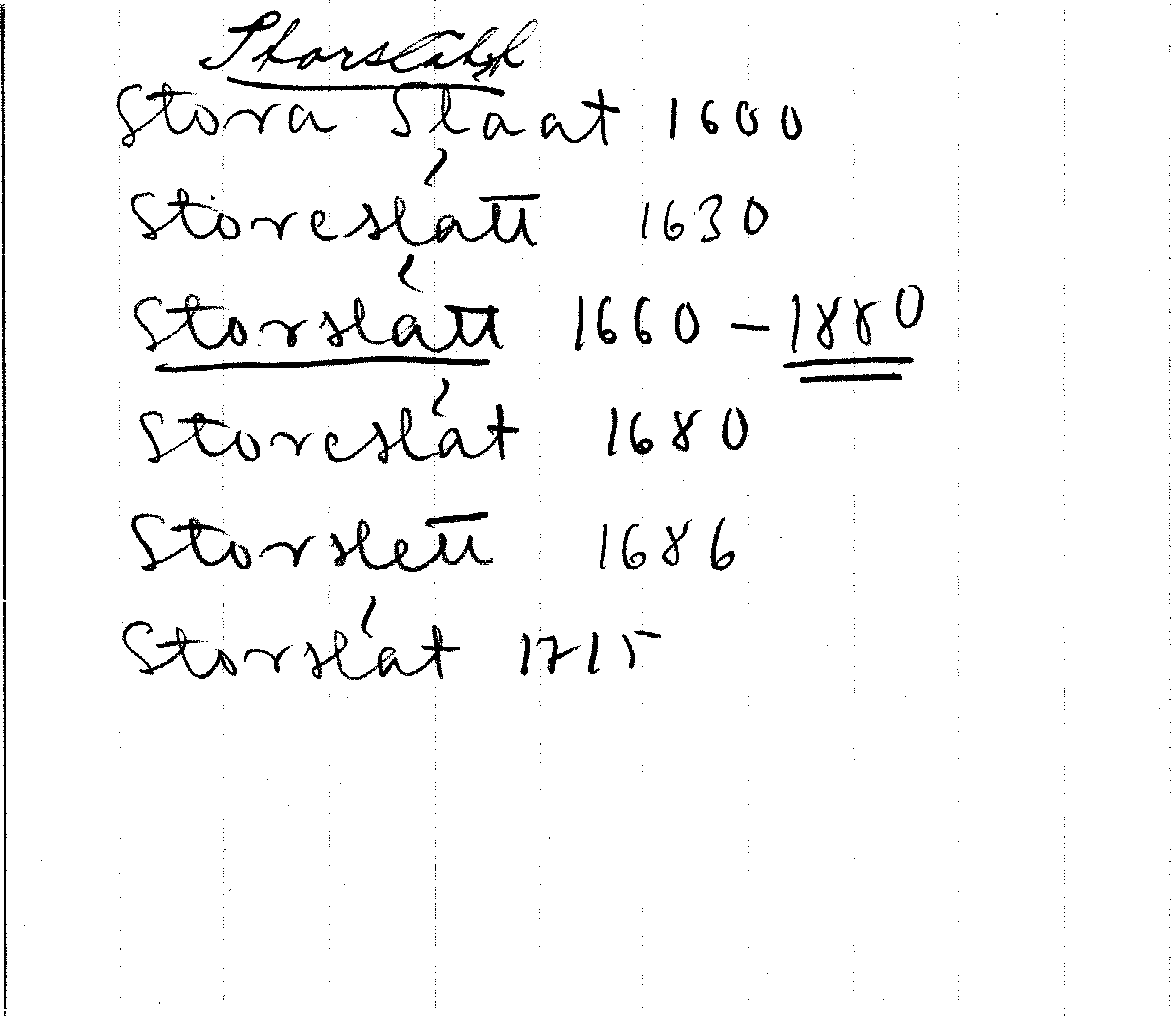 Storslått
Stora Slaat 1600
Storeslått 1630
Storslått 1660 – 1880
Storeslåt 1680
Storslett 1686
Storslåt 1715